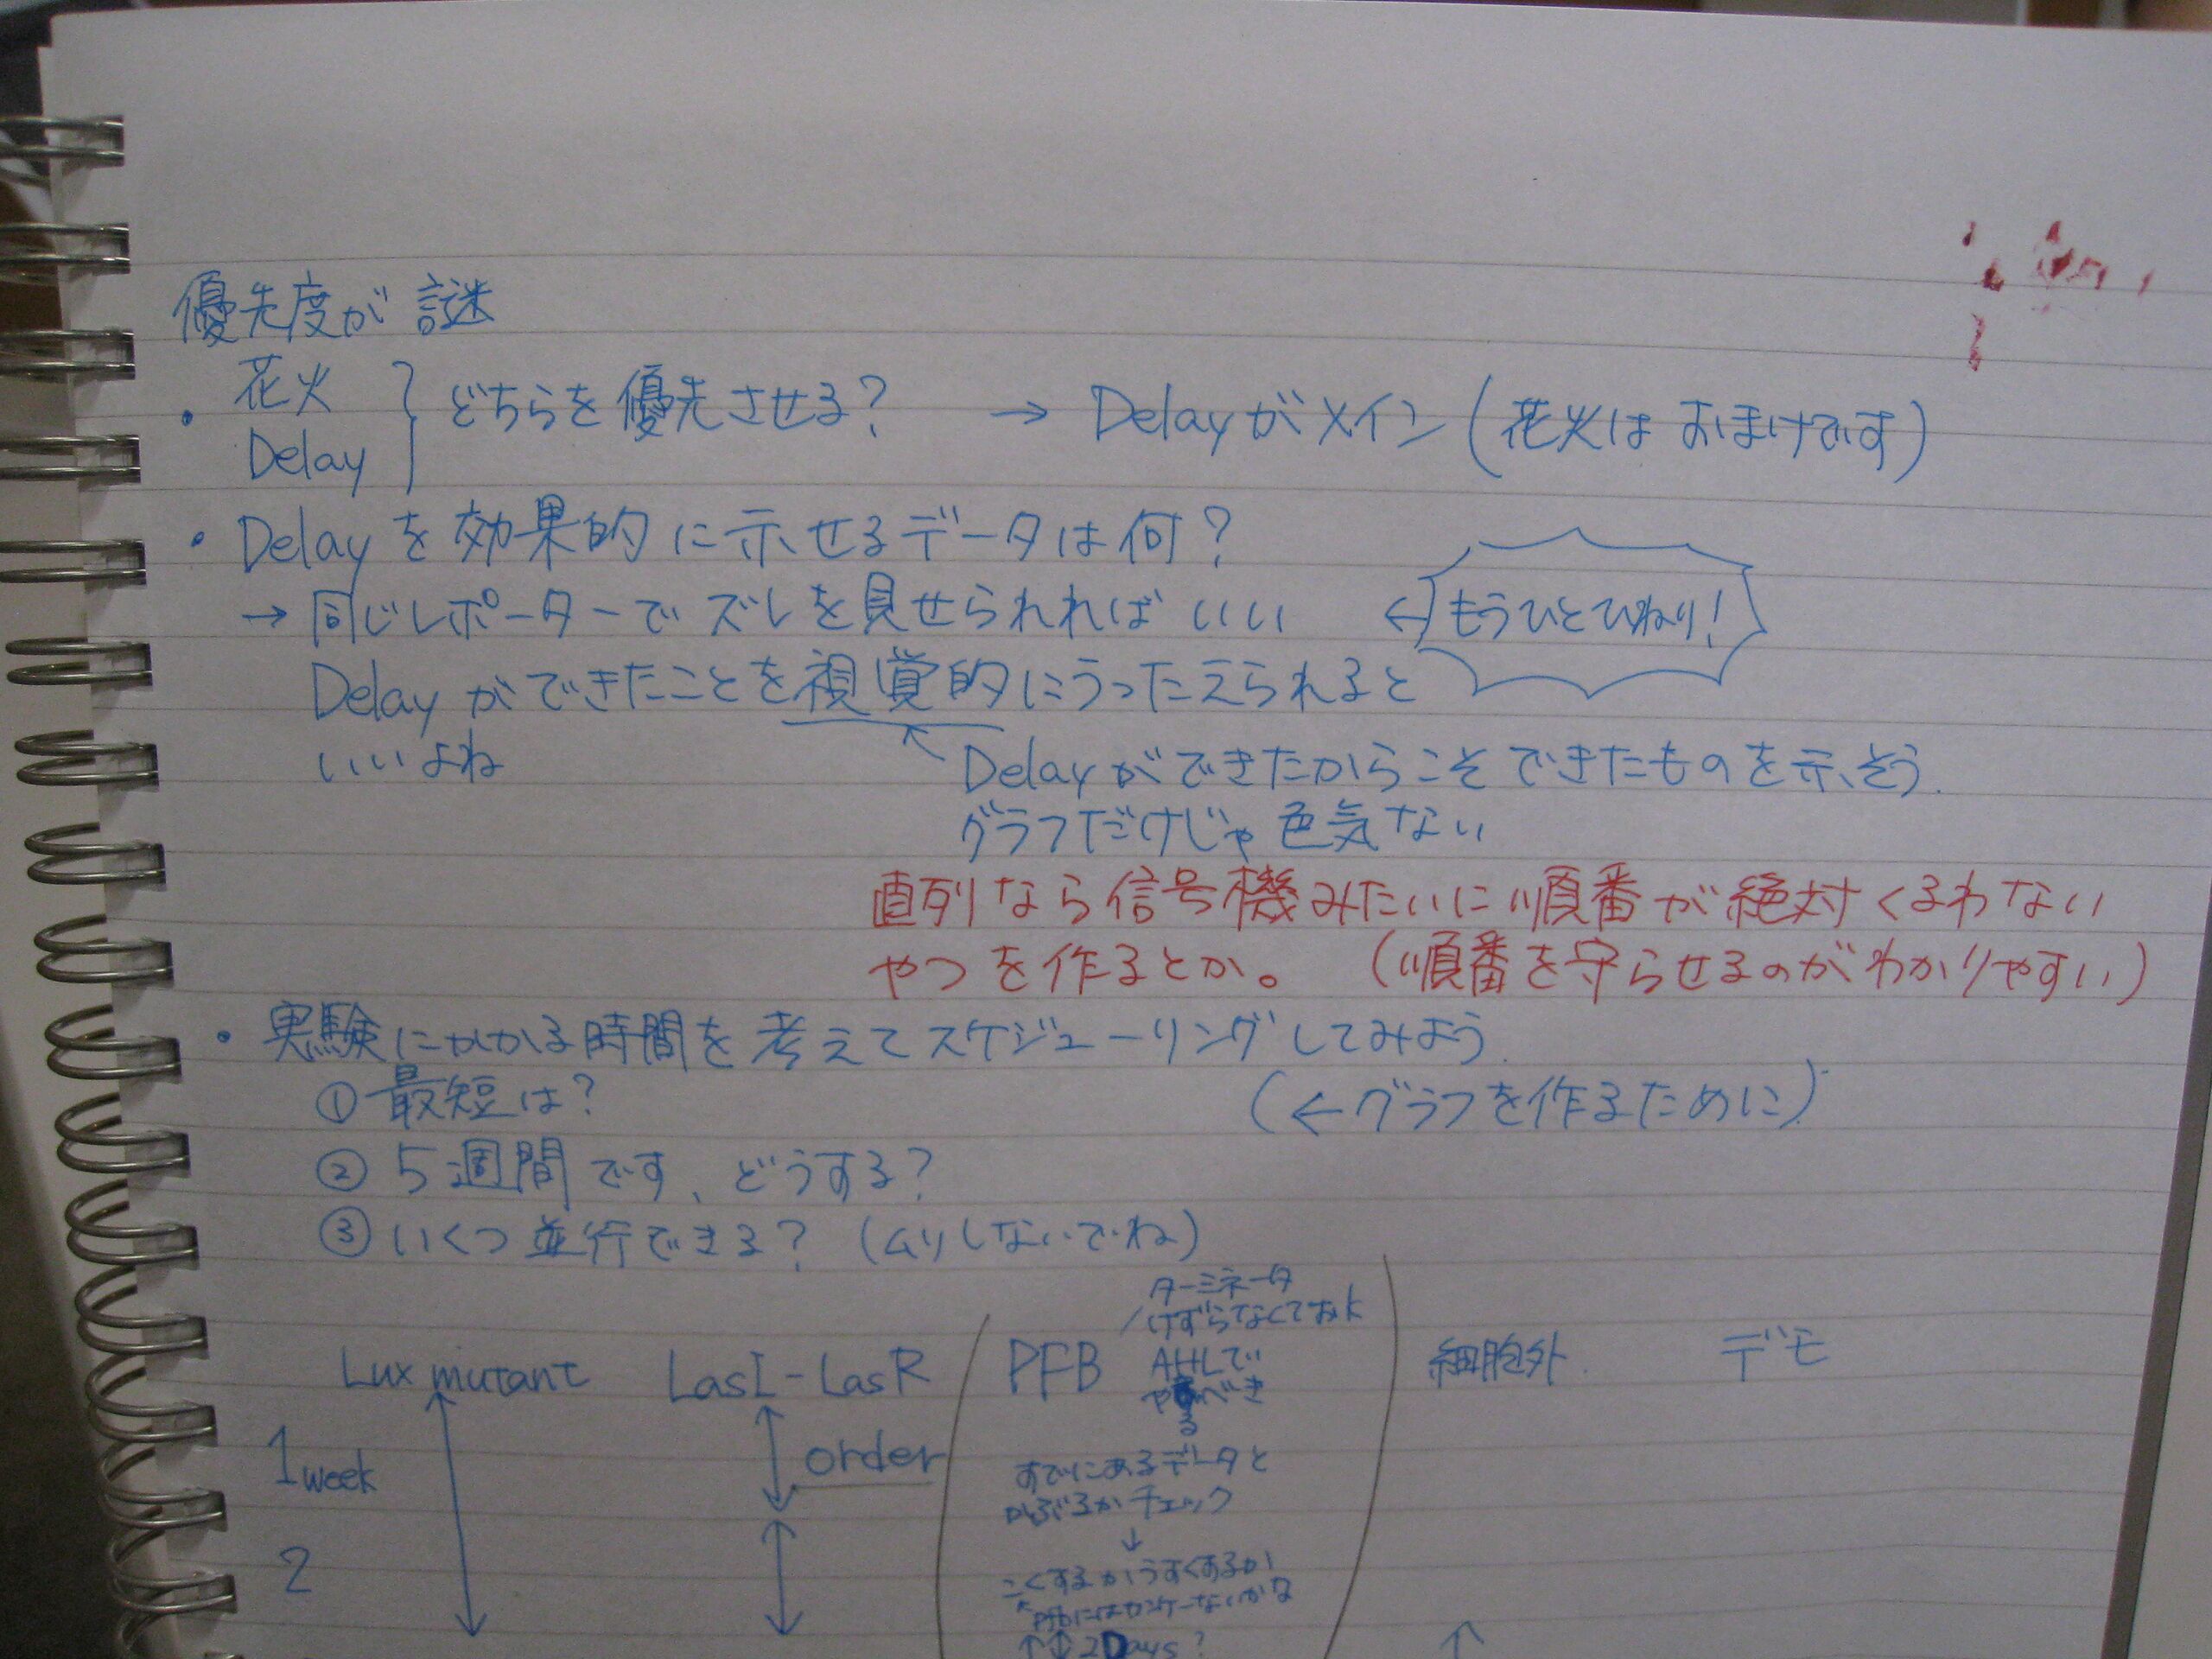 優先度が謎
・花火
Delay } どちらを優先させる? → Delayがメイン (花火は おまけです)
・Delayを効果的に示せるデータは何?
→ 同じレポーターでズレを見せられればいい ← もうひとひねり!
Delayができたことを視覚的にうったえられると
いいよね
Delayができたからこそできたものを示そう.
グラフだけじゃ色気ない
直列なら信号機みたいに順番が絶対くるわない
やつを作るとか。 (順番を守らせるのがわかりやすい)
・実験にかかる時間を考えてスケジューリングしてみよう.
① 最短は? (←グラフを作るために)
② 5週間です、どうする?
③ いくつ並行できる? (ムリしないでね)
ターミネータ
けずらなくておk
Lux mutant LasI-LasR PFB AHLで 細胞外. デモ
やるべき
1week order すでにあるデータと
かぶるかチェック
↓
2 こくするかうすくするか
PFBにはカンケーないかな
↑↕2Days?